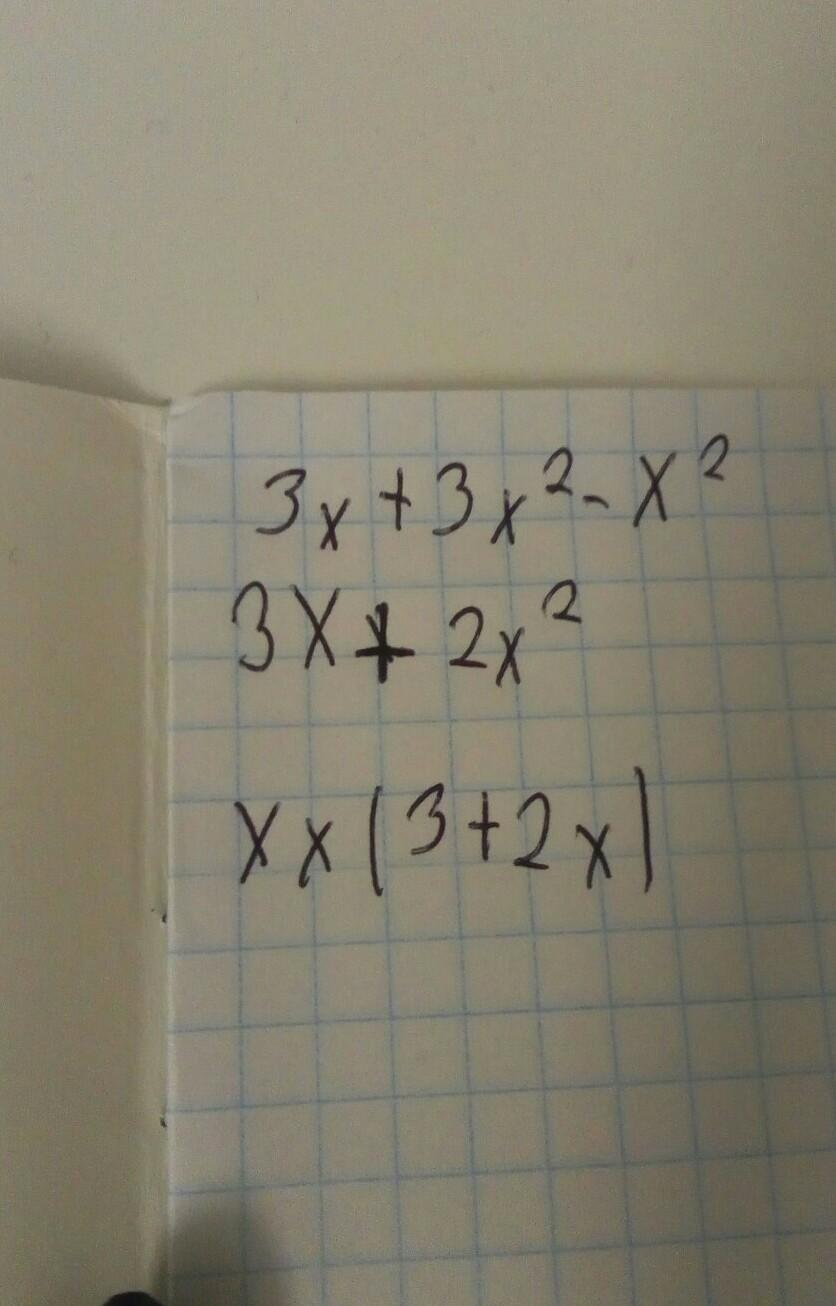 3x+3x²-x²
3x+2x²
xx(3+2x)